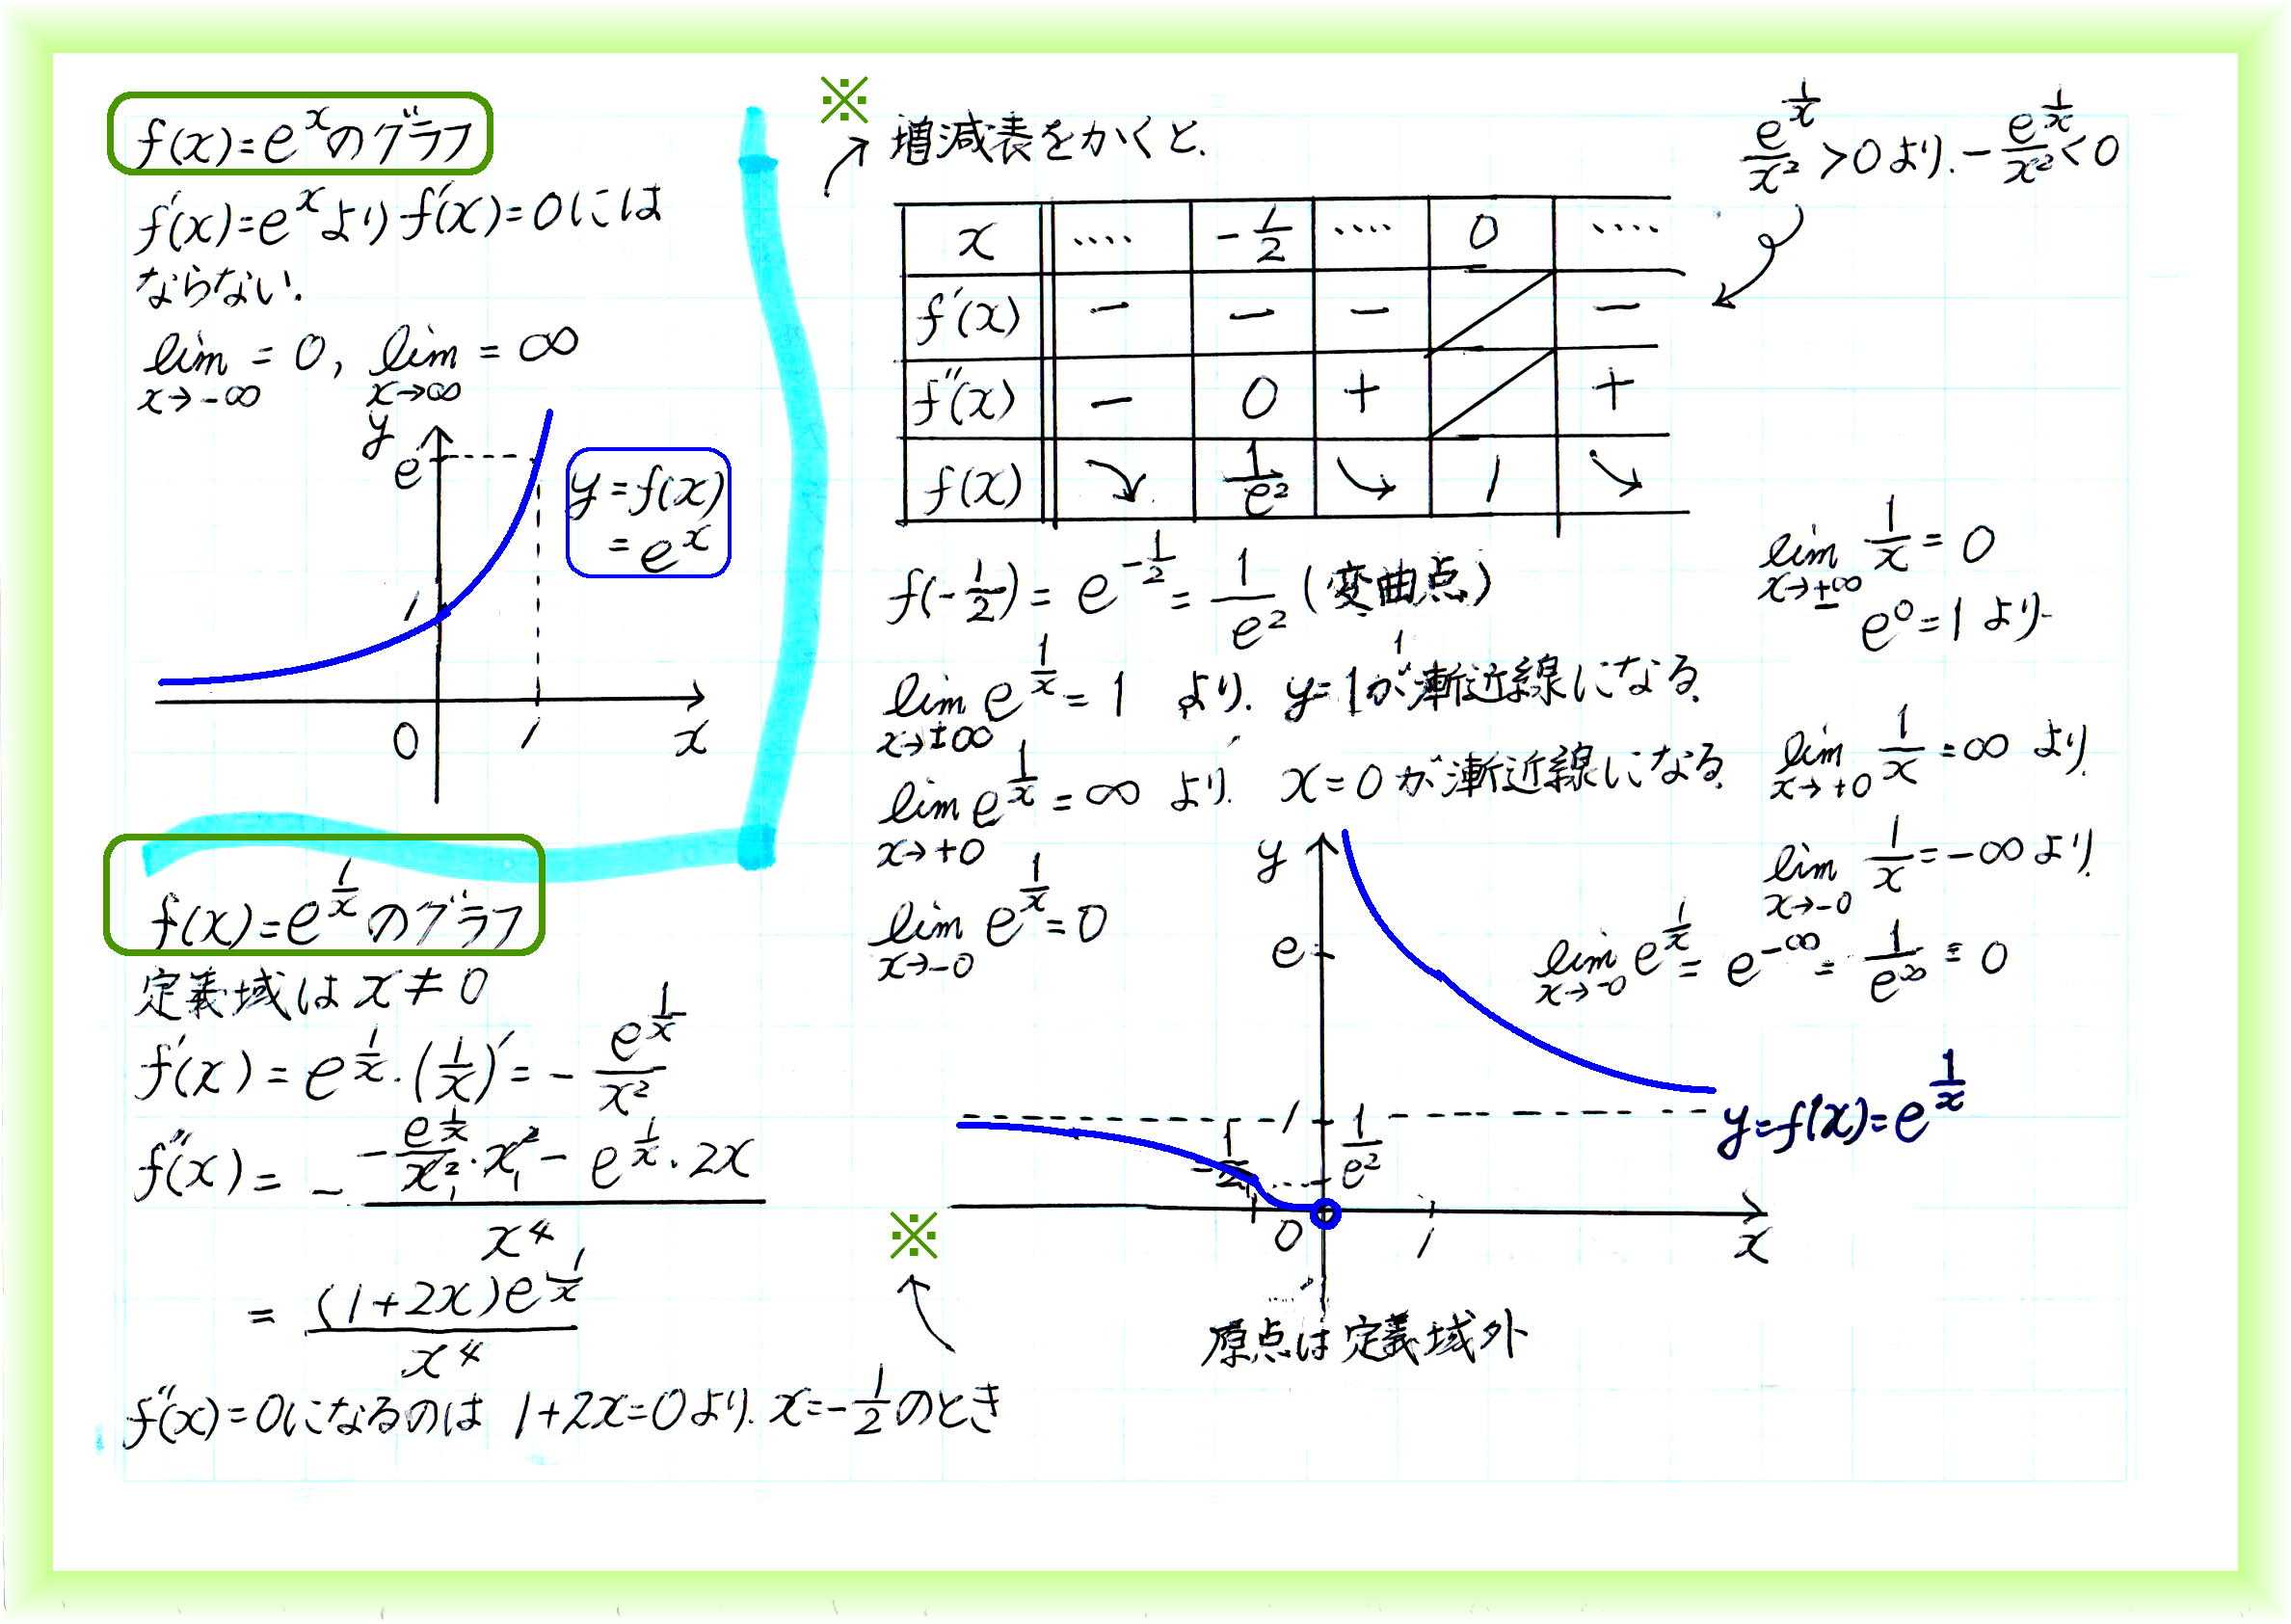 f(x)=e^xのグラフ
f'(x)=e^xより f'(x)=0には
ならない.
lim_{x→-∞} = 0, lim_{x→∞} = ∞
y
e
y=f(x)
=e^x
1
0 1 x
f(x)=e^{1/x}のグラフ
定義域は x≠0
f'(x)=e^{1/x}・(1/x)'=-e^{1/x}/x^2
f''(x)= - (-e^{1/x}/x^2・x^2 - e^{1/x}・2x)/x^4
= (1+2x)e^{1/x}/x^4
f''(x)=0になるのは 1+2x=0より. x=-1/2のとき
※
※
増減表をかくと.
e^{1/x}/x^2 >0より. -e^{1/x}/x^2 <0
x ‥‥ -1/2 ‥‥ 0 ‥‥
f'(x) - - - ／ -
f''(x) - 0 + ／ +
f(x) ↘ 1/e^2 ↘ 1 ↘
f(-1/2)= e^{-1/2} = 1/e^2 (変曲点)
lim_{x→±∞} 1/x = 0
e^0=1より
lim_{x→±∞} e^{1/x} = 1 より. y=1が漸近線になる.
lim_{x→+0} e^{1/x} = ∞ より. x=0が漸近線になる.
lim_{x→+0} 1/x = ∞ より.
lim_{x→-0} e^{1/x} = 0
lim_{x→-0} 1/x = -∞より.
lim_{x→-0} e^{1/x} = e^{-∞} = 1/e^∞ = 0
y
e
1
1/e^2
-1/2
y=f(x)=e^{1/x}
0 1 x
原点は定義域外